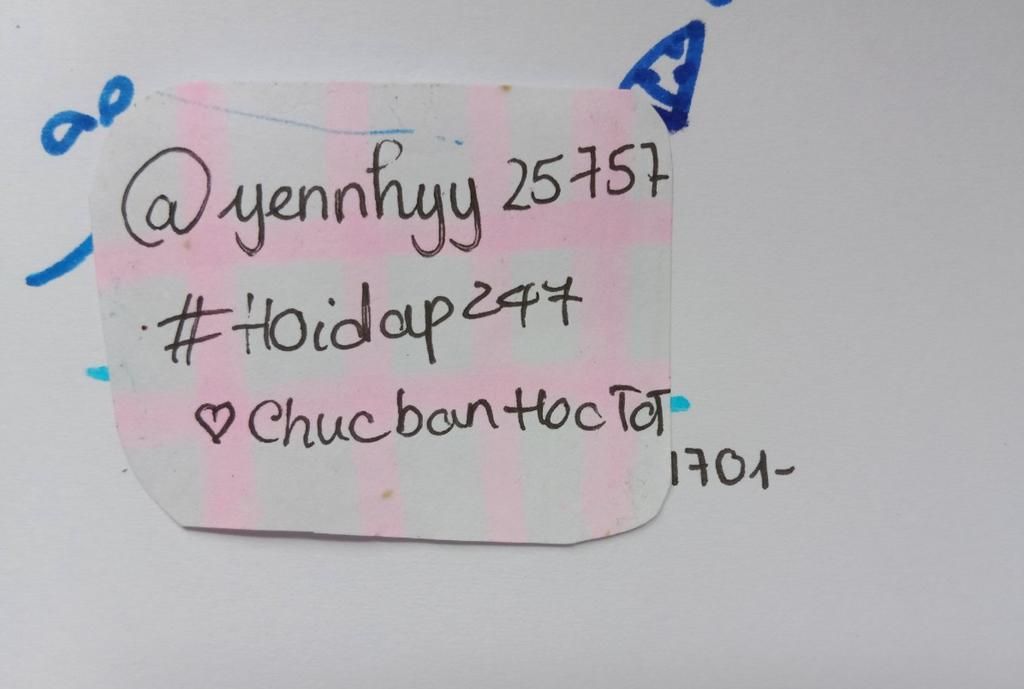 @yennhyy 25757
#Hoidap247
♡ Chuc ban Hoc Tot
1701-